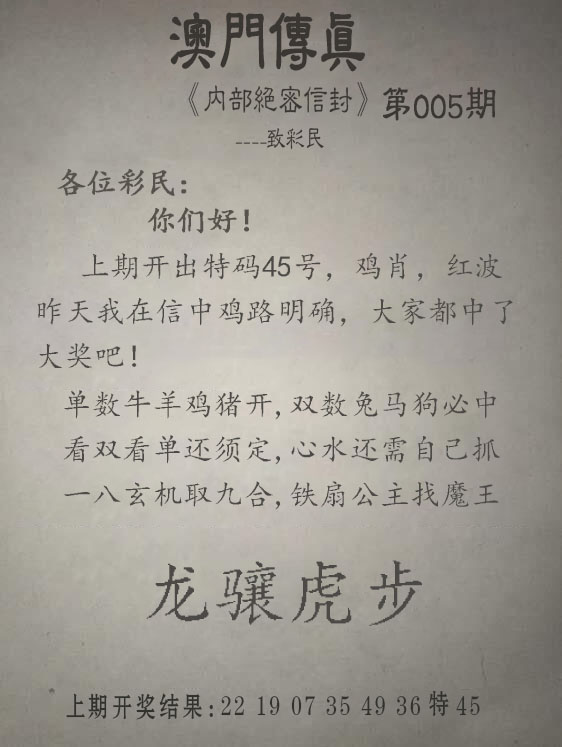 澳門傳眞
《内部絕密信封》第005期
----致彩民
各位彩民：
你们好！
上期开出特码45号，鸡肖，红波
昨天我在信中鸡路明确，大家都中了
大奖吧！
单数牛羊鸡猪开,双数兔马狗必中
看双看单还须定,心水还需自己抓
一八玄机取九合,铁扇公主找魔王
龙骧虎步
上期开奖结果:22 19 07 35 49 36 特 45